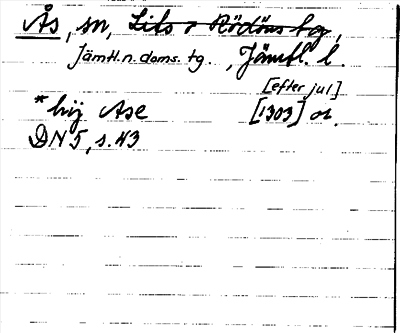 Ås, sn, Lits o Rödöns tg,
Jämtl. n. doms. tg. , Jämtl. l.
[efter jul]
*hij Ase [1303] or.
DN 5, s. 43